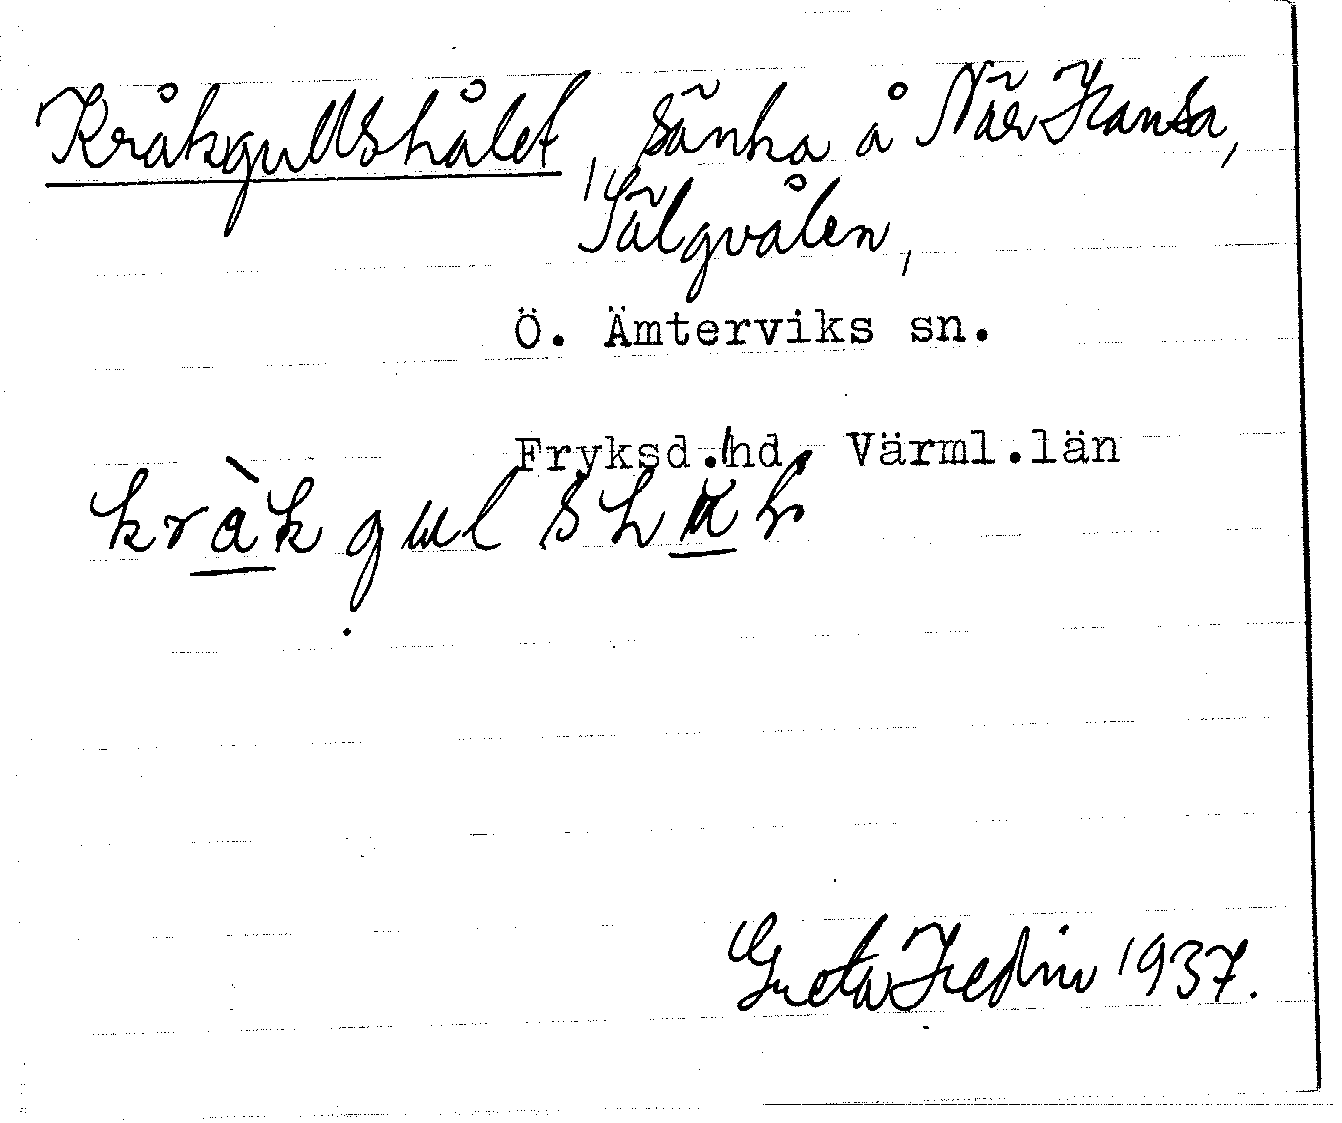 Kråkgullshålet, sänka å När Hansa,
Sälgvålen,
Ö. Ämterviks sn.
Fryksd. hd, Värml.län
kràk gul sh
Greta Hedin 1937.